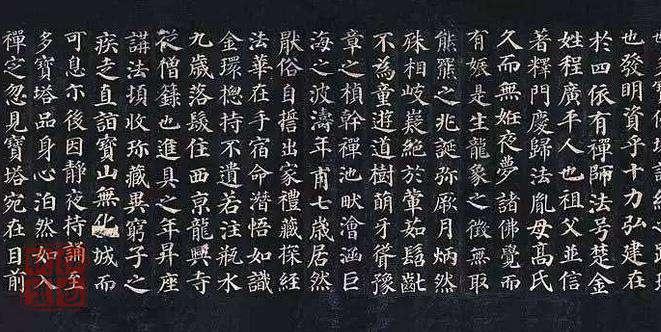 也發明資乎十力弘建在
於四依有禪師法號楚金
姓程廣平人也祖父並信
著釋門慶歸法胤母高氏
久而無妊夜夢諸佛覺而
有娠是生龍象之徵無取
熊羆之兆誕彌厥月炳然
殊相岐嶷絕於葷茹髫齔
不為童遊道樹萌牙聳豫
章之楨幹禪池畎澮涵巨
海之波濤年甫七歲居然
猒俗自誓出家禮藏探經
法華在手宿命潛悟如識
金環揔持不遺若注瓶水
九歲落髮住西京龍興寺
從僧籙也進具之年昇座
講法頓收珍藏異窮子之
疾走直詣寶山無化城而
可息尒後因靜夜持誦至
多寶塔品身心泊然如入
禪定忽見寶塔宛在目前